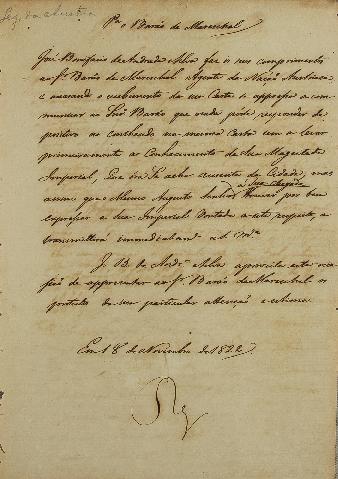 Leg. da Austria
Pa. o Barão de Mareschal
José Bonifacio de Andrada e Silva faz os seus comprimentos
ao Sr. Barão de Mareschal Agente da Nação Austriaca
e accusando o recebimento da sua Carta se appressa a com-
municar ao Snr. Barão que nada póde responder de
positivo ao conthendo na mesma Carta sem a levar
primeiramente ao Conhecimento de Sua Magestade
Imperial, Que ora Se acha ausente da Cidade, mas
assim que o Mesmo Augusto Senhor houver por bem
a Sua chegada
expressar a Sua Imperial Vontade a este respeito, a
transmittirá immediatamte. a S. Mce.
J. B. de Andra. e Silva aproveita esta oca-
sião de appresentar ao Sr. Barão de Mareschal os
protestos da sua particular attenção e estima.
Em 18 de Novembro de 1822